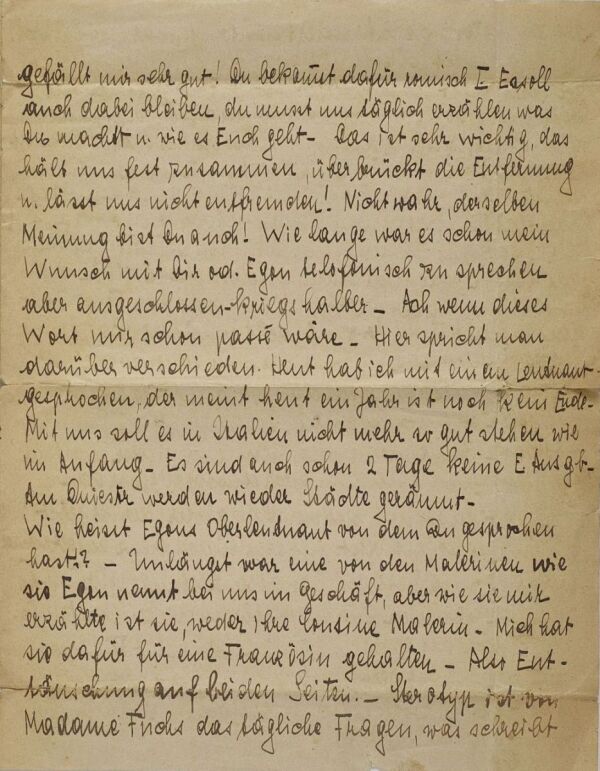 gefällt mir sehr gut! Du bekommst dafür römisch I Es soll
auch dabei bleiben, du musst uns täglich erzählen was
Du machst u. wie es Euch geht – Das ist sehr wichtig, das
hält uns fest zusammen, überbrückt die Entfernung
u. lässt uns nicht entfremden! Nicht wahr, derselben
Meinung bist Du auch! Wie lange war es schon mein
Wunsch mit Dir od. Egon telefonisch zu sprechen
aber ausgeschlossen – kriegshalber – Ach wenn dieses
Wort nur schon passé wäre – Hier spricht man
darüber verschieden. Heut hab ich mit einem Leutnant
gesprochen, der meint heut ein Jahr ist noch kein Ende –
Mit uns soll es in Italien nicht mehr so gut stehen wie
im Anfang – Es sind auch schon 2 Tage keine E Ausgb –
Am Dniestr werden wieder Städte geräumt –
Wie heisst Egons Oberleutnant von dem Du gesprochen
hast? – Unlängst war eine von den Malerinen wie
sie Egon nennt bei uns im Geschäft, aber wie sie mir
erzählte ist sie, weder ihre Cousine Malerin – Mich hat
sie dafür für eine Französin gehalten – Also Ent-
täuschung auf beiden Seiten. – Sterotyp ist von
Madame Fuchs das tägliche Fragen, was schreibt